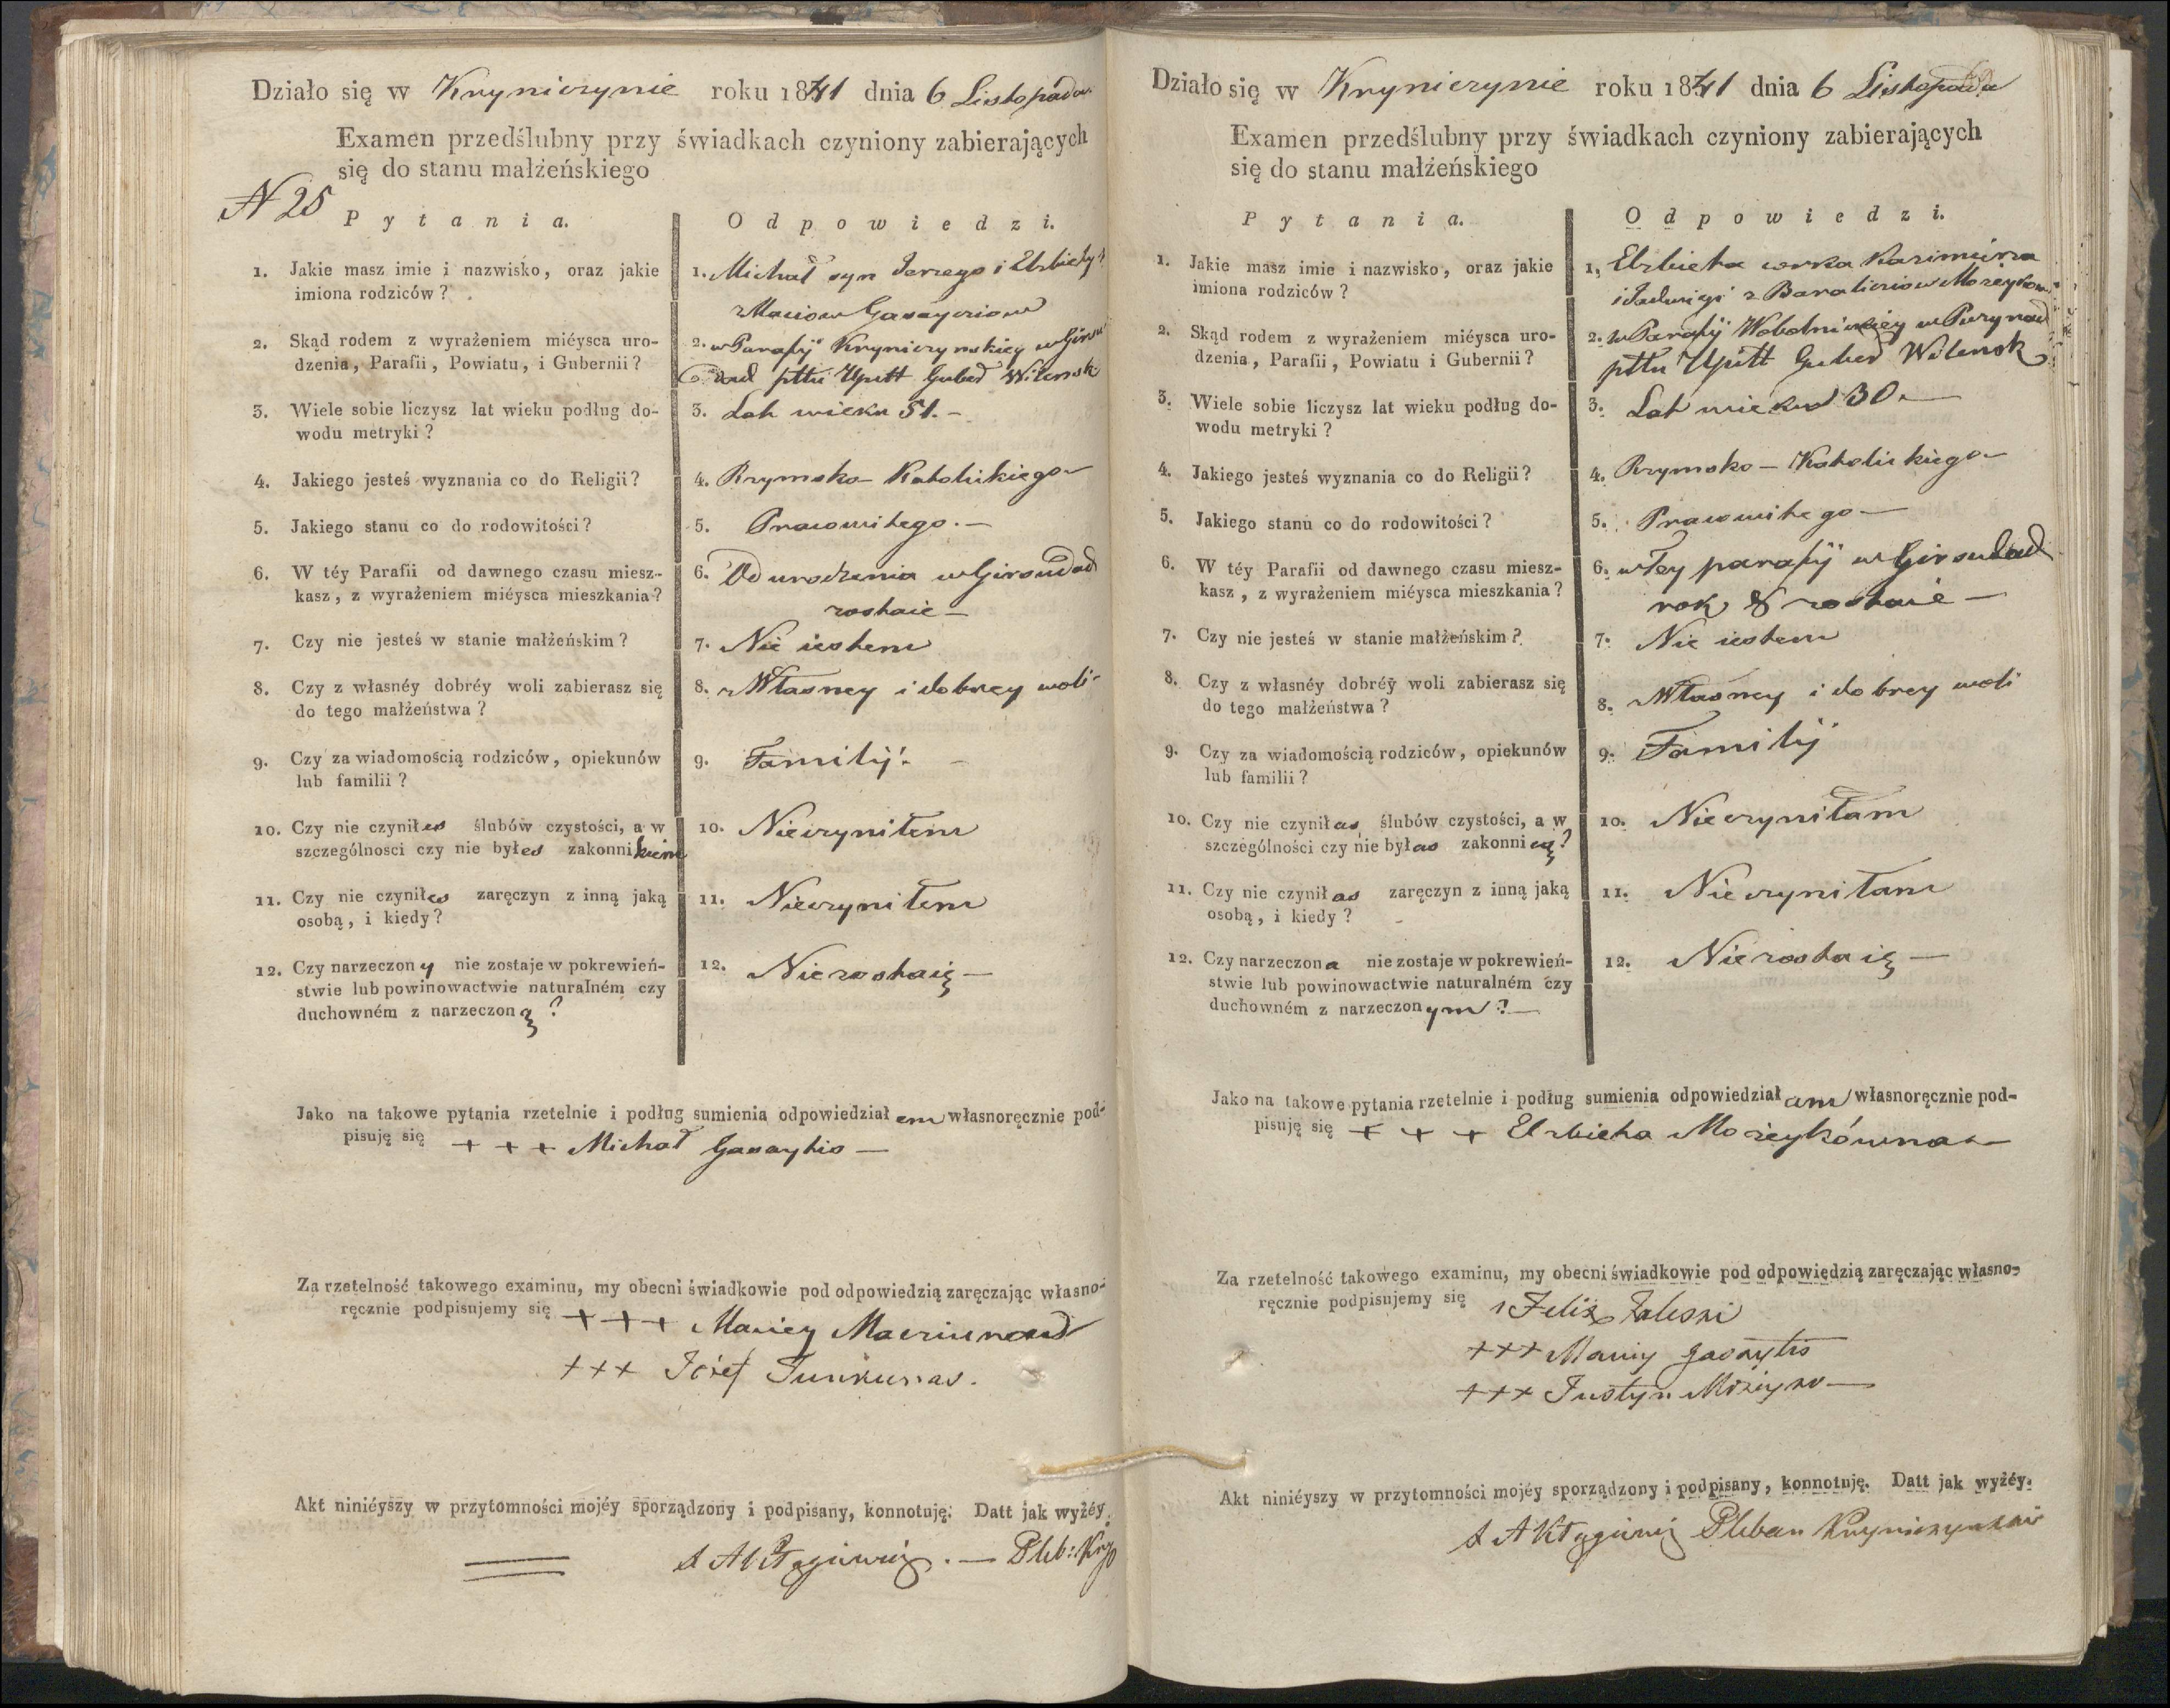 Działo się w Kryniczynie roku 1841 dnia 6 Listopada
Examen przedślubny przy świadkach czyniony zabierających
się do stanu małżeńskiego
N 25
Pytania. Odpowiedzi.
1. Jakie masz imie i nazwisko, oraz jakie
imiona rodziców?
1. Michał syn Jerzego i Elżbiety
Gasayciow
2. Skąd rodem z wyrażeniem miéysca uro-
dzenia, Parafii, Powiatu, i Gubernii?
2. w Parafij Kryniczynskiey w
pttu Upitt Guber Wilensk
3. Wiele sobie liczysz lat wieku podług do-
wodu metryki?
3. Lat wieku 51. –
4. Jakiego jesteś wyznania co do Religii?
4. Rzymsko – Katolickiego
5. Jakiego stanu co do rodowitości?
5. Prawowitego. –
6. W téy Parafii od dawnego czasu miesz-
kasz, z wyrażeniem miéysca mieszkania?
6. Od urodzenia w Giroudad
zostaie –
7. Czy nie jesteś w stanie małżeńskim?
7. Nie iestem
8. Czy z własnéy dobréy woli zabierasz się
do tego małżeństwa?
8. z Własney i dobrey woli
9. Czy za wiadomością rodziców, opiekunów
lub familii?
9. Familij. –
10. Czy nie czyniłes ślubów czystości, a w
szczególnosci czy nie byłes zakonnikiem
10. Nieczyniłem
11. Czy nie czyniłes zaręczyn z inną jaką
osobą, i kiedy?
11. Nieczyniłem
12. Czy narzeczony nie zostaje w pokrewień-
stwie lub powinowactwie naturalném czy
duchowném z narzeczoną?
12. Niezostaię –
Jako na takowe pytania rzetelnie i podług sumienia odpowiedziałem własnoręcznie pod-
pisuję się + + + Michał Gasaytis –
Za rzetelność takowego examinu, my obecni świadkowie pod odpowiedzią zaręczając własno-
ręcznie podpisujemy się + + + Maciey
+++ Józef Junkunas.
Akt niniéyszy w przytomności mojéy sporządzony i podpisany, konnotuję. Datt jak wyżéy.
Pleb:
Działo się w Kryniczynie roku 1841 dnia 6 Listopada
Examen przedślubny przy świadkach czyniony zabierających
się do stanu małżeńskiego
Pytania. Odpowiedzi.
1. Jakie masz imie i nazwisko, oraz jakie
imiona rodziców?
1. Elzbieta corka Kazimierza
i Jadwigi z
2. Skąd rodem z wyrażeniem miéysca uro-
dzenia, Parafii, Powiatu i Gubernii?
2. w Parafij Wobolnickiey w
pttu Upitt Guber Wilensk
3. Wiele sobie liczysz lat wieku podług do-
wodu metryki?
3. Lat wieku 30. –
4. Jakiego jesteś wyznania co do Religii?
4. Rzymsko – Katolickiego –
5. Jakiego stanu co do rodowitości?
5. Prawowitego –
6. W téy Parafii od dawnego czasu miesz-
kasz, z wyrażeniem miéysca mieszkania?
6. w Tey parafij w Giroudad
rok 8 zostaie –
7. Czy nie jesteś w stanie małżeńskim?
7. Nie iestem
8. Czy z własnéy dobréy woli zabierasz się
do tego małżeństwa?
8. z Własney i dobrey woli
9. Czy za wiadomością rodziców, opiekunów
lub familii?
9. Familij
10. Czy nie czyniłas ślubów czystości, a w
szczególności czy nie byłas zakonnicą?
10. Nieczyniłam
11. Czy nie czyniłas zaręczyn z inną jaką
osobą, i kiedy?
11. Nieczyniłam
12. Czy narzeczona nie zostaje w pokrewień-
stwie lub powinowactwie naturalném czy
duchowném z narzeczonym? –
12. Niezostaię –
Jako na takowe pytania rzetelnie i podług sumienia odpowiedziałam własnoręcznie pod-
pisuję się + + + Elzbieta Możeykówna –
Za rzetelność takowego examinu, my obecni świadkowie pod odpowiędzią zaręczając własno-
ręcznie podpisujemy się Felix Zaleski
+++ Maciey Gasaytis
+++ Justyn Możeyko –
Akt niniéyszy w przytomności mojéy sporządzony i podpisany, konnotuję. Datt jak wyżéy.
Pleban Kryniczynski